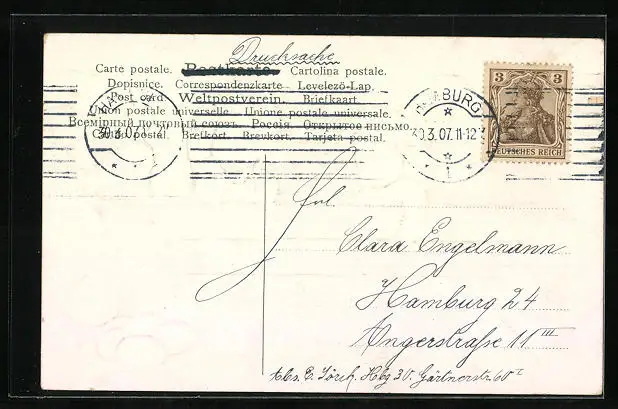 Drucksache
Carte postale. Postkarte. Cartolina postale.
Dopisnice. Correspondenzkarte Levelező-Lap.
Post card. Weltpostverein. Briefkaart.
Union postale universelle. Unione postale universale.
Всемірный почтрный союзъ. Россія. Открытое письмо.
postal. Bretkort. Brevkort. Tarjeta postal.
30.3.07
HAMBURG
30.3.07. 11-12
1
3 3
DEUTSCHES REICH
Frl.
Clara Engelmann
Hamburg 24
Angerstraße 11 III
Abs. E. Hbg 30. Gärtnerstr. 60 I